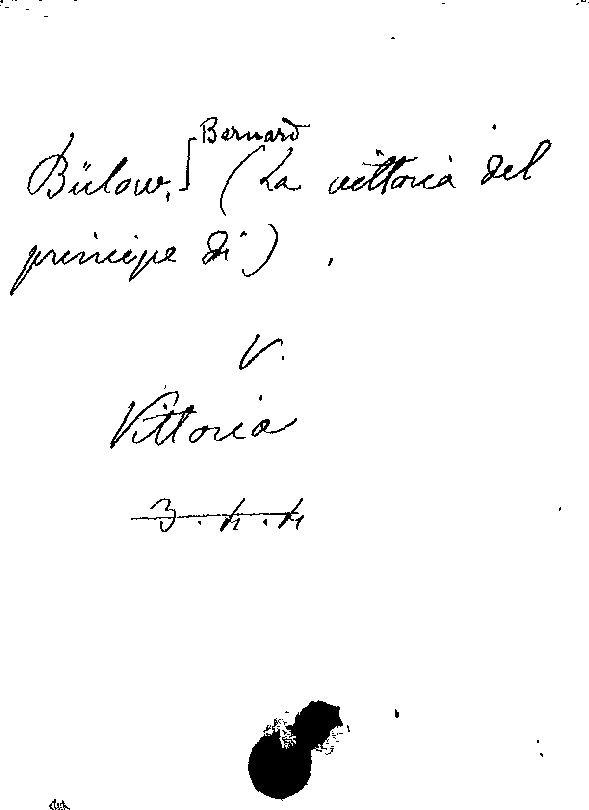 Bülow, Bernard (La vittoria del
principe di).
V.
Vittoria
3.4.4